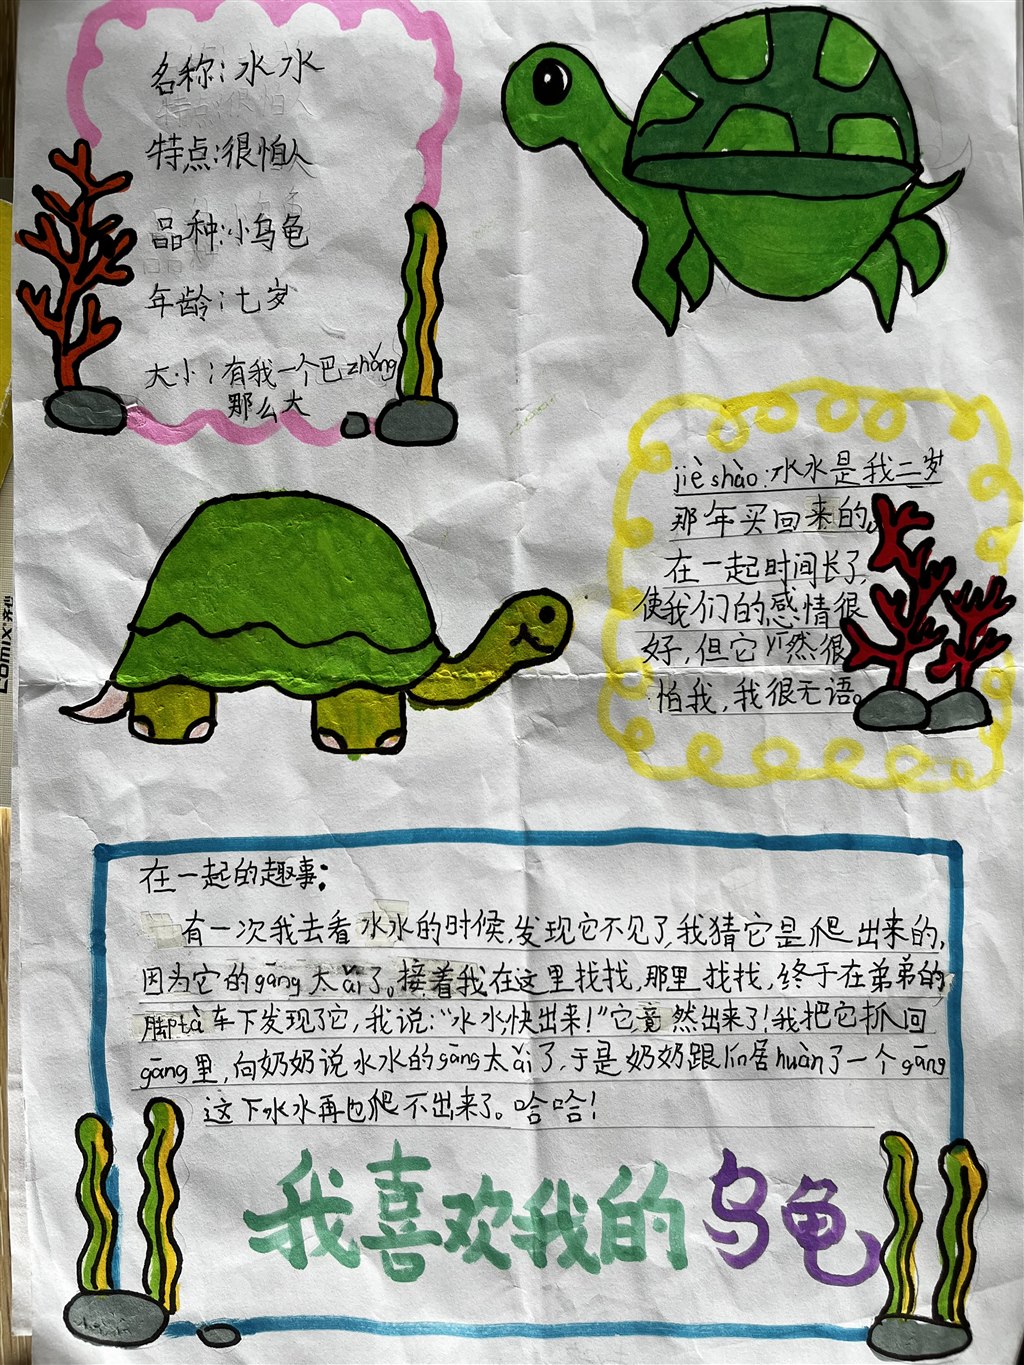 名称:水水
特点:很怕人
品种:小乌龟
年龄:七岁
大小:有我一个巴zhǎng
那么大
jiè shào:水水是我二岁
那年买回来的。
在一起时间长了,
使我们的感情很
好,但它
然很
怕我,我很无语。
在一起的趣事:
有一次我去看水水的时候,发现它不见了,我猜它是爬出来的,
因为它的gāng太ǎi了。接着我在这里找找,那里找找,终于在弟弟的
脚tà车下发现了它,我说:“水水,快出来!”它竟然出来了!我把它抓回
gāng里,向奶奶说水水的gāng太ǎi了,于是奶奶跟lín居huàn了一个gāng
这下水水再也爬不出来了。哈哈!
我喜欢我的乌龟
comix 齐心